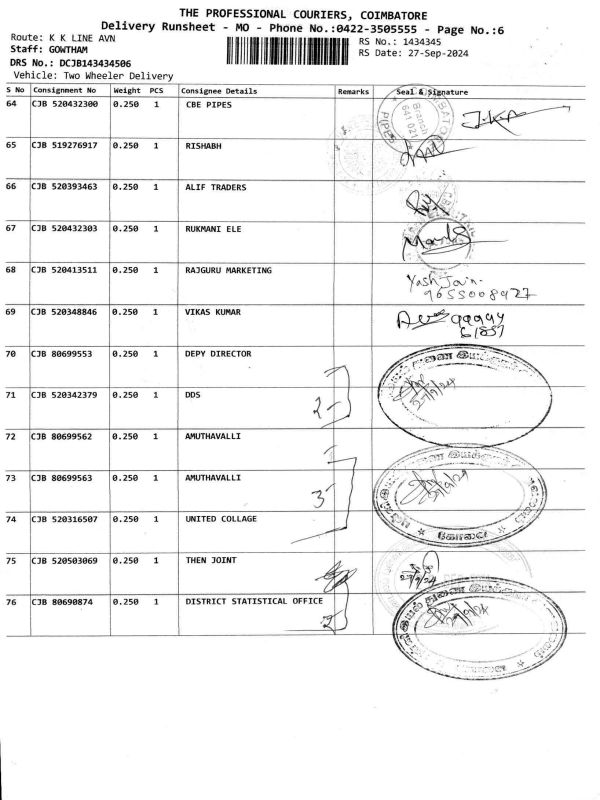 THE PROFESSIONAL COURIERS, COIMBATORE
Delivery Runsheet - MO - Phone No.:0422-3505555 - Page No.:6
Route: K K LINE AVN
RS No.: 1434345
Staff: GOWTHAM
RS Date: 27-Sep-2024
DRS No.: DCJB143434506
Vehicle: Two Wheeler Delivery
S No Consignment No Weight PCS Consignee Details Remarks Seal & Signature
64 CJB 520432300 0.250 1 CBE PIPES
PIPES Branch 641 021
65 CJB 519276917 0.250 1 RISHABH
66 CJB 520393463 0.250 1 ALIF TRADERS
67 CJB 520432303 0.250 1 RUKMANI ELE
68 CJB 520413511 0.250 1 RAJGURU MARKETING
Yash Jain.
9655008927
69 CJB 520348846 0.250 1 VIKAS KUMAR
70 CJB 80699553 0.250 1 DEPY DIRECTOR
27/9/24
71 CJB 520342379 0.250 1 DDS
2-
72 CJB 80699562 0.250 1 AMUTHAVALLI
73 CJB 80699563 0.250 1 AMUTHAVALLI
3-
74 CJB 520316507 0.250 1 UNITED COLLAGE
கோவை
75 CJB 520503069 0.250 1 THEN JOINT
27/9/24
76 CJB 80690874 0.250 1 DISTRICT STATISTICAL OFFICE
2-